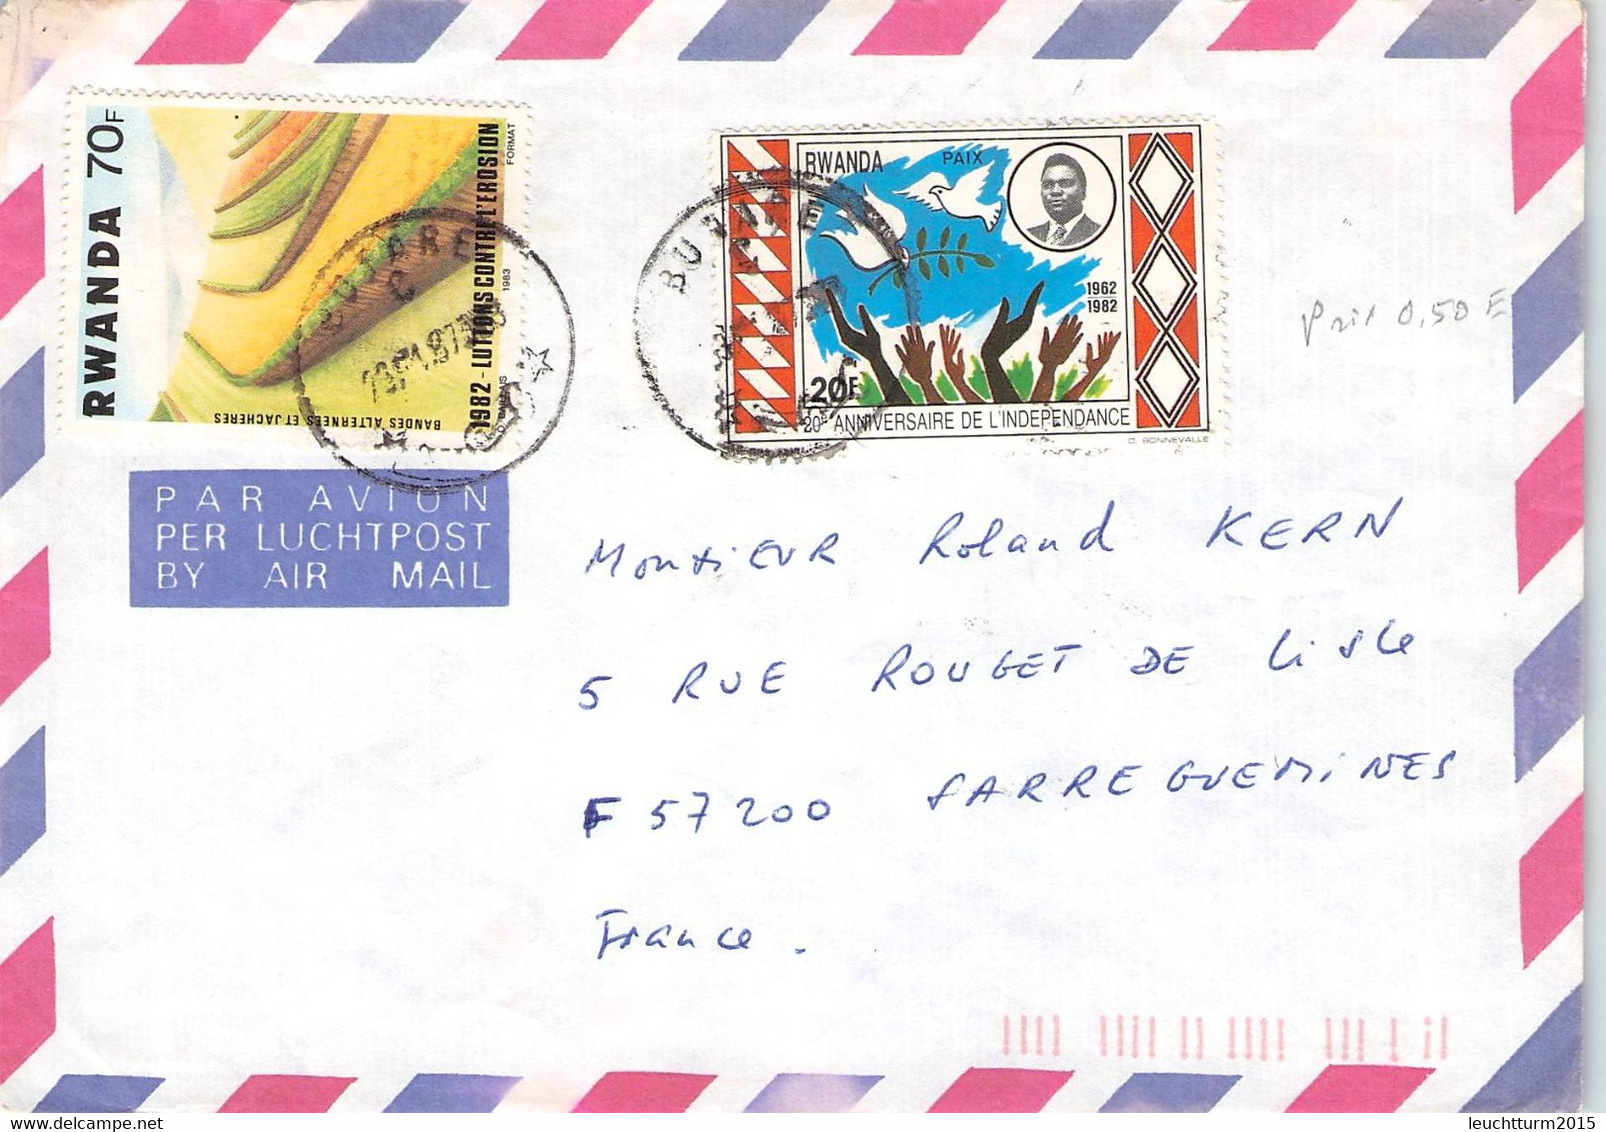 RWANDA 70F
FORMAT
1983
1982 - LUTTONS CONTRE L'EROSION
BANDES ALTERNEES ET JACHERES
BUTARE
C
RWANDA PAIX
1962
1982
20F
20e ANNIVERSAIRE DE L'INDEPENDANCE
D. BONNEVALLE
BUTARE
Prix 0,50 E
PAR AVION
PER LUCHTPOST
BY AIR MAIL
Monsieur Roland KERN
5 RUE ROUGET DE Lisle
F 57200 SARREGUEMINES
France.
leuchtturm2015